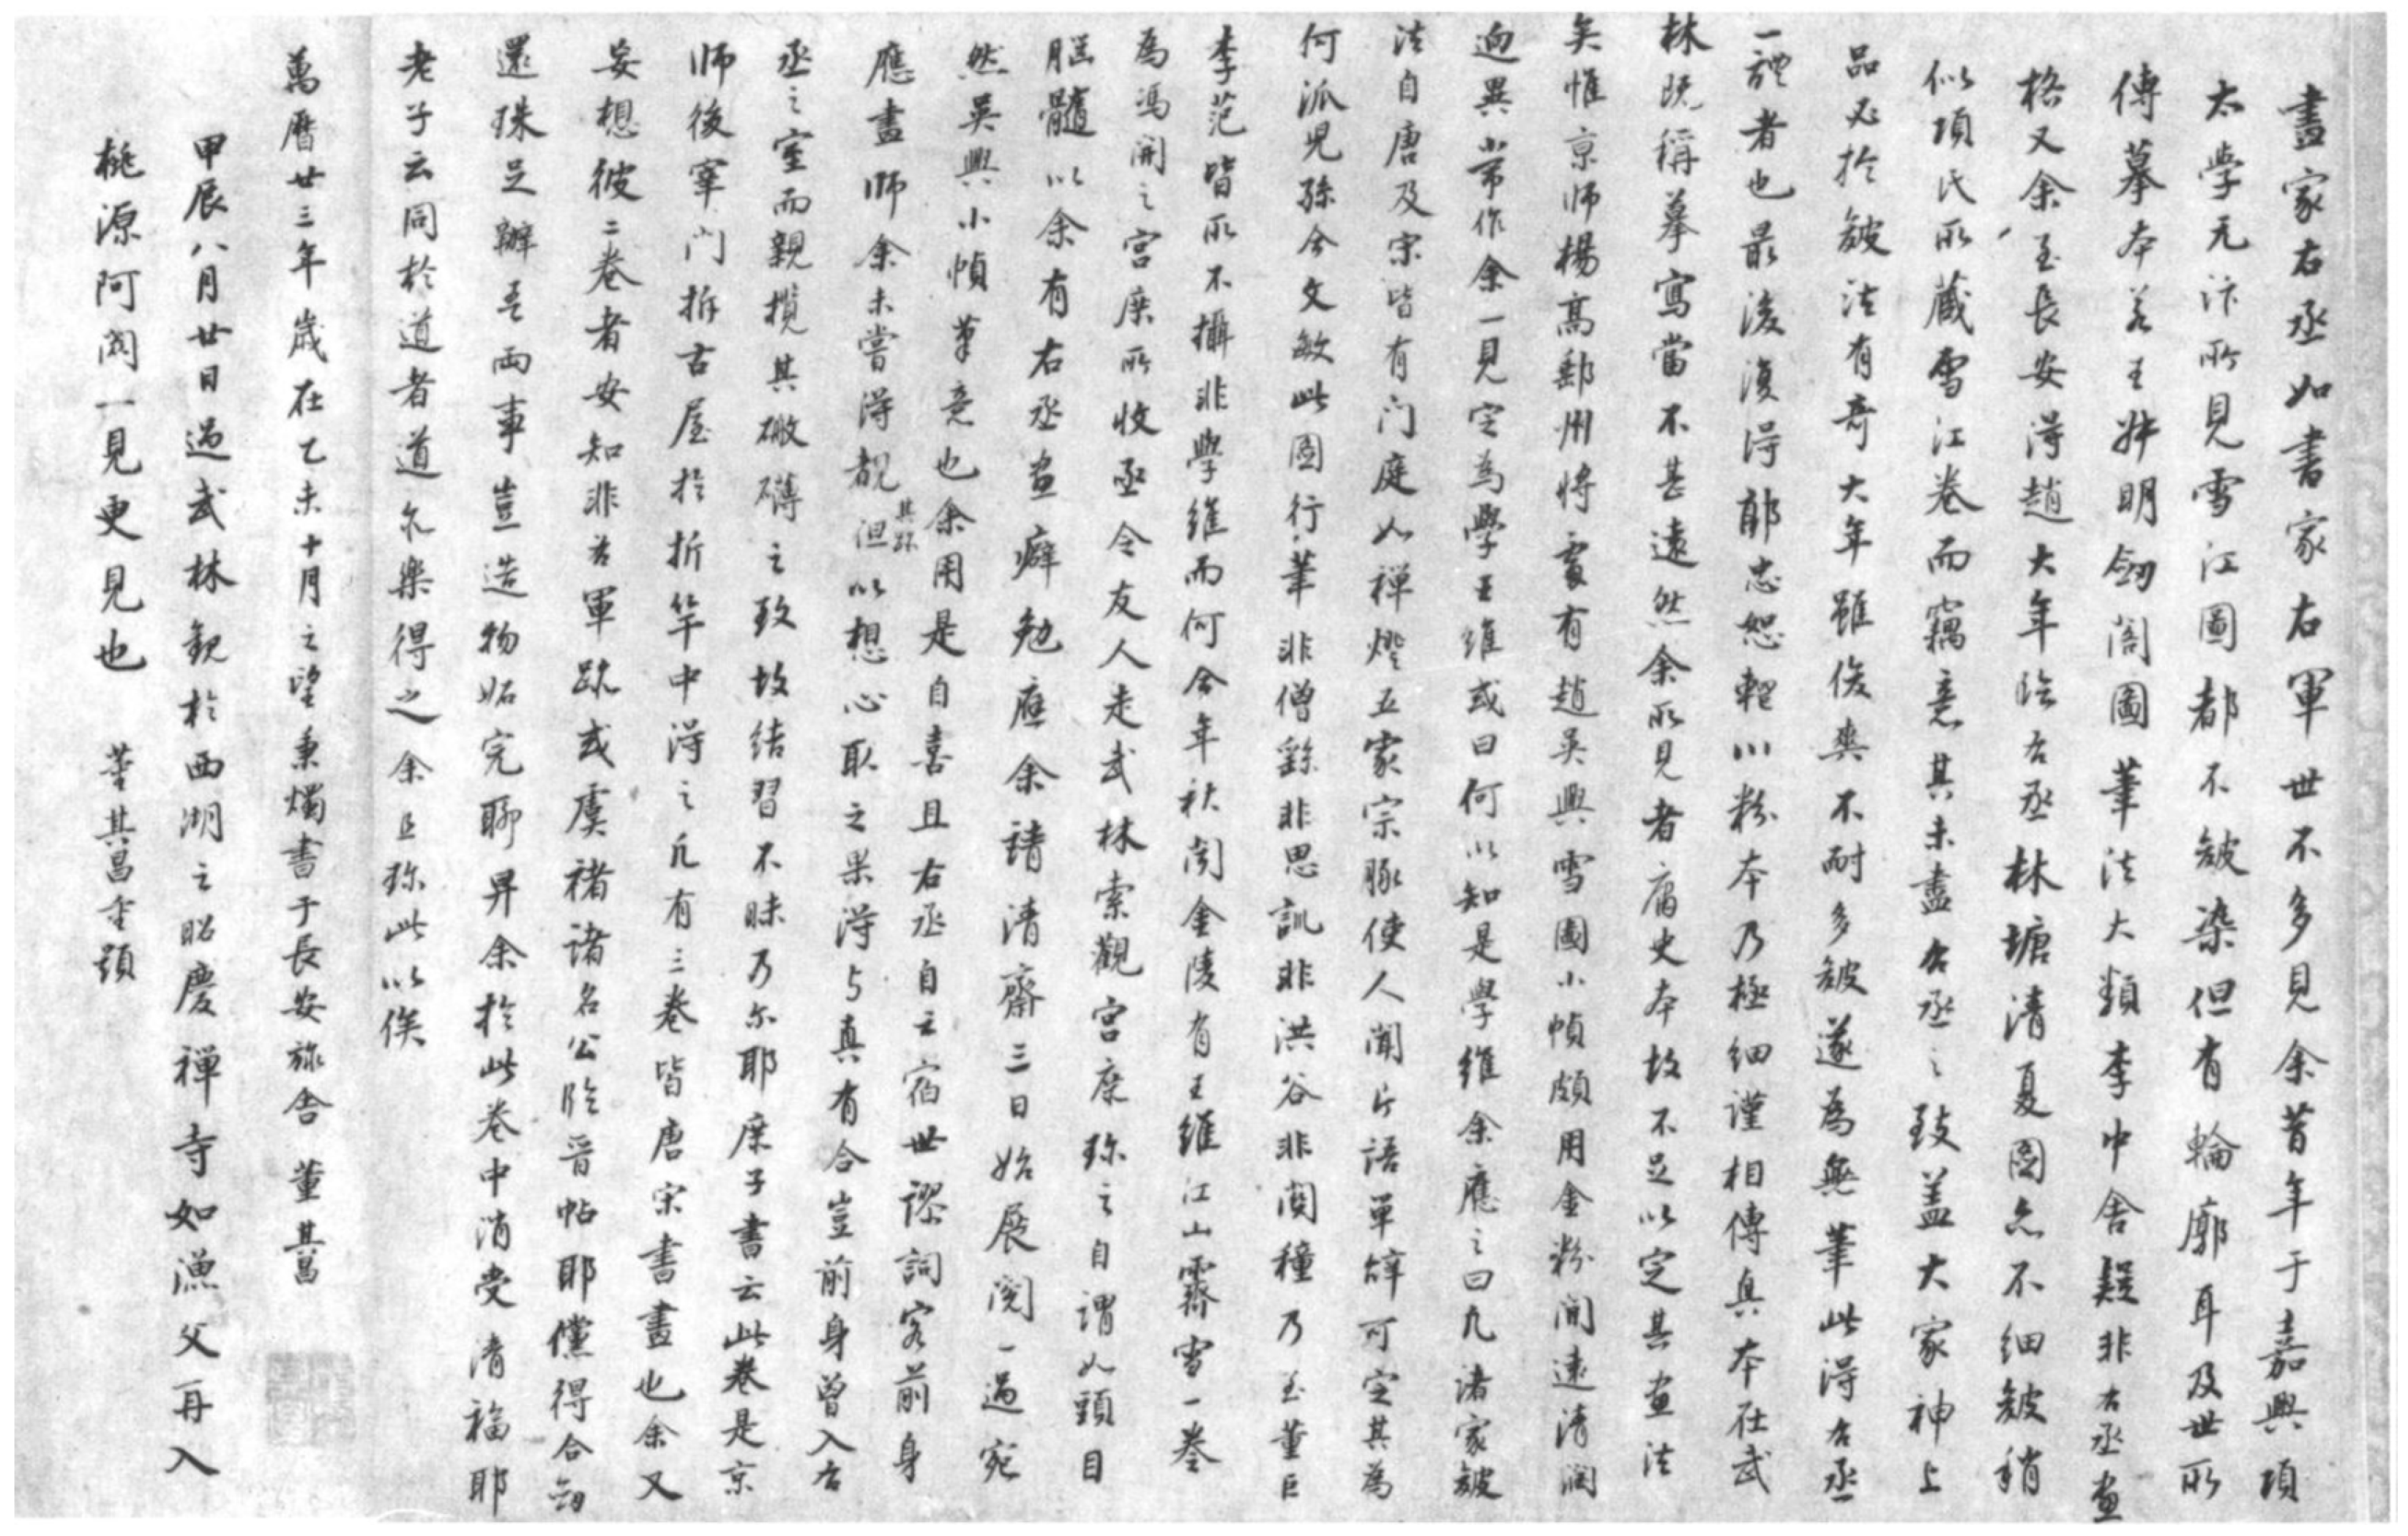 畫家右丞如書家右軍世不多見余昔年于嘉興項
太學元汴所見雪江圖都不皴染但有輪廓耳及世所
傳摹本若王叔明劒閣圖筆法大類李中舍疑非右丞畫
格又余至長安得趙大年臨右丞林塘清夏圖亦不細皴稍
似項氏所藏雪江卷而竊意其未盡右丞之致盖大家神上
品必於皴法有奇大年雖俊爽不耐多皴遂為無筆此得右丞
一體者也最後復得郭忠恕輞川粉本乃極細謹相傳真本在武
林既稱摹寫當不甚遠然余所見者庸史本故不足以定其畫法
矣惟京師楊高郵州將處有趙吳興雪圖小幀頗用金粉閒遠清潤
迥異常作余一見定為學王維或曰何以知是學維余應之曰凢諸家皴
法自唐及宋皆有门庭如禅燈五家宗脉使人聞片語單辭可定其為
何派兒孫今文敏此圖行筆非僧繇非思訓非洪谷非関穜乃至董巨
李范皆所不攝非學維而何今年秋聞金陵有王維江山霽雪一卷
為馮開之宮庶所收亟令友人走武林索觀宮庶珎之自謂如頭目
腦髓以余有右丞畫癖勉應余請清齋三日始展閱一過宛
然吳興小幀筆意也余用是自喜且右丞自云宿世謬詞客前身
應畫師余未嘗得覩其跡但以想心取之果得与真有合豈前身曾入右
丞之室而親攬其磐礴之致故結習不昧乃尓耶庶子書云此卷是京
師後宰门拆古屋於折竿中得之凢有三卷皆唐宋書畫也余又
妄想彼二卷者安知非右軍跡或虞褚諸名公臨晋帖耶儻得合劒
還珠足辦吾兩事豈造物妬完聊畀余於此卷中消受清福耶
老子云同於道者道亦樂得之余且珎此以俟
萬曆廿三年歲在乙未十月之望秉燭書于長安旅舍 董其昌
甲辰八月廿日過武林觀於西湖之昭慶禅寺如漁父再入
桃源阿閦一見更見也 董其昌重題